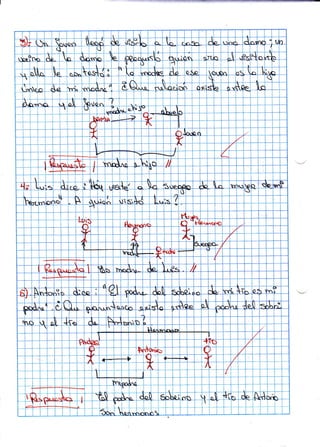 3): Un joven llegó de visita a la casa de una dama; un
vecino de la dama le preguntó quién era el visitante
y ella le contestó: "la madre de ese joven es la hija
única de mi madre" ¿Que relación existe entre la
dama y el joven?
madre e hijo
dama
abuelo
Joven
Respuesta / madre e hijo //
4: Luis dice: "Hoy visité a la suegra de la mujer de mi
hermano". A quién visitó Luis?
Luis
Hermano
Mujer
Hermano
Suegra
Respuesta / madre de Luis. //
5). Antonio dice: "El padre del sobrino de mi tío es mi
padre". ¿Que parentesco existe entre el padre del sobri
no y el tío de Antonio?
Hermano
Padre
Antonio
tío
Mi padre
Respuesta / El padre del sobrino y el tío de Antonio
Son hermanos